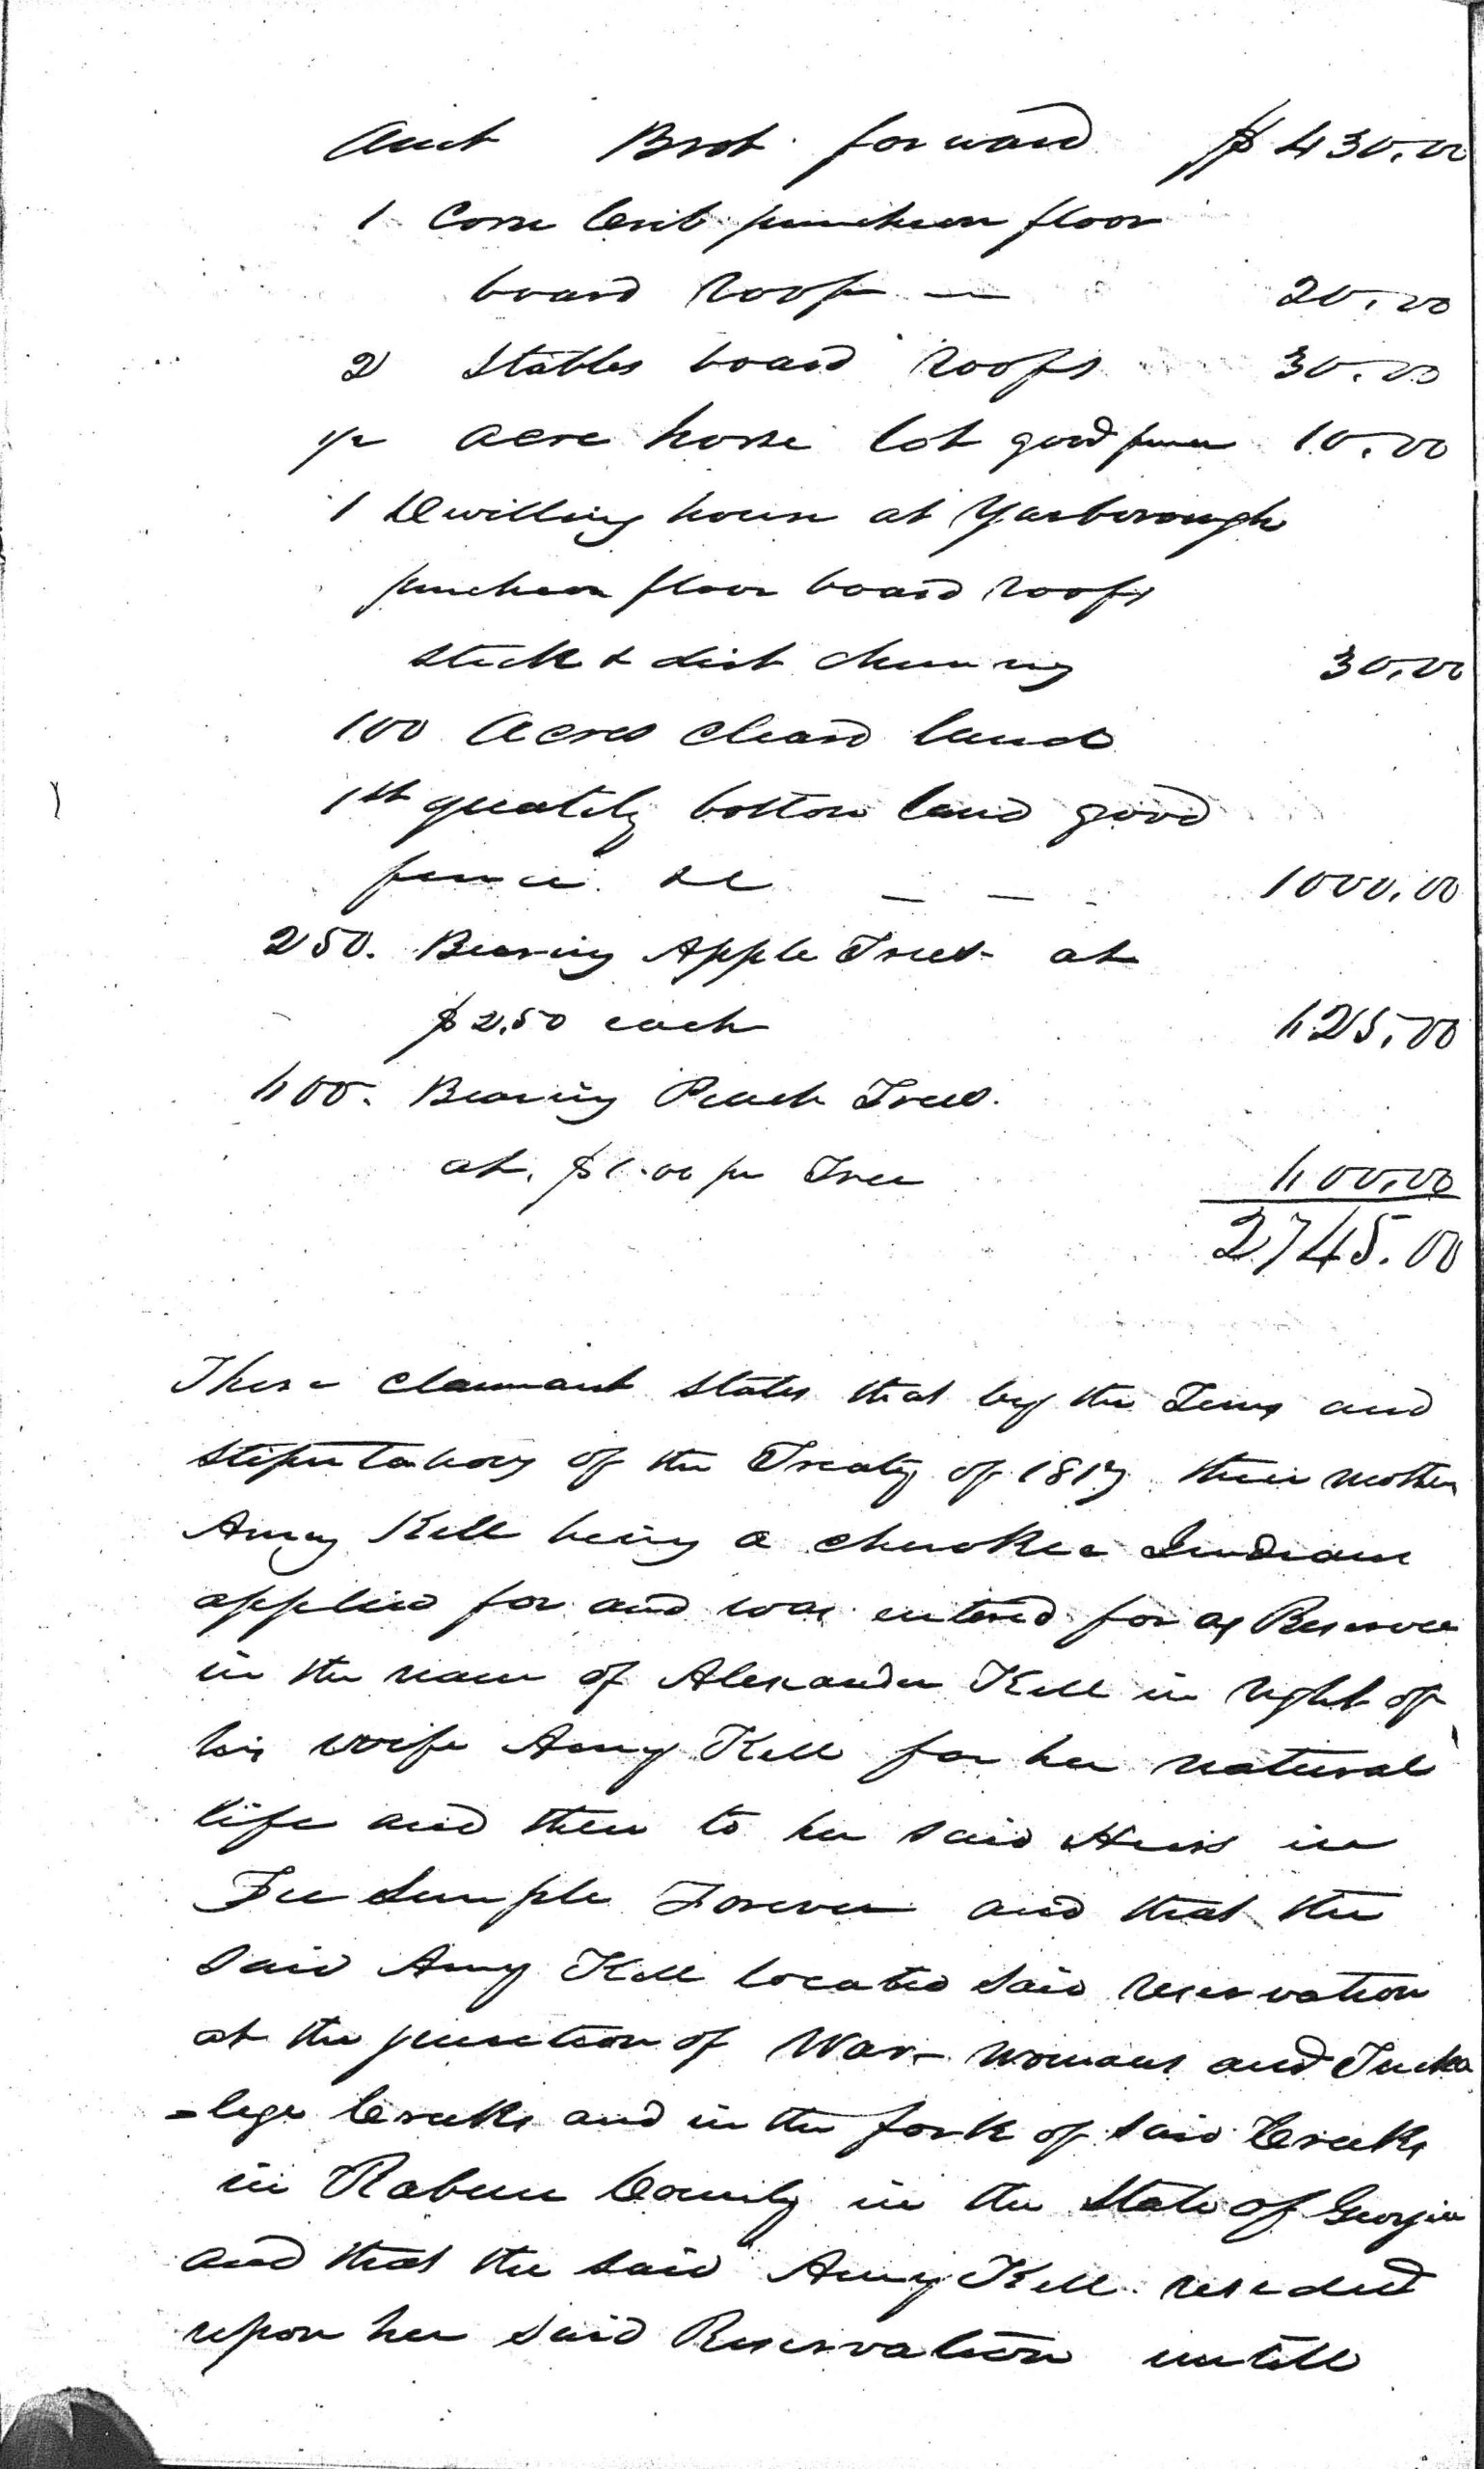 Amt Brot. forward $430.00
1 Corn Crib puncheon floor
board roof — 20.00
2 Stables board roofs 30.00
1/2 acre horse lot good fence 10.00
1 Dwilling house at Yarborough
puncheon floor board roofs
stick & dirt chimney 30.00
100 Acres cleard land
1st quality bottom land good
fence &c — — - 1000.00
250. Bearing Apple Trees at
$2.50 each 625.00
600. Bearing Peach Trees.
at. $1.00 pr Tree 600.00
2745.00
These claimant states that by the Terms and
stipulations of the Treaty of 1817 their mother
Amy Kell being a cherokee Indian
applied for and was entered for as Reservee
in the name of Alexander Kell in right of
his wife Amy Kell for her natural
life and then to her said Heirs in
Fee Simple Forever and that the
said Amy Kell located said reservation
at the junction of War-womans and Tucka
=lege Creeks and in the fork of said Creeks
in Rabun County in the State of Georgia
and that the said Amy Kell resided
upon her said Reservation untill